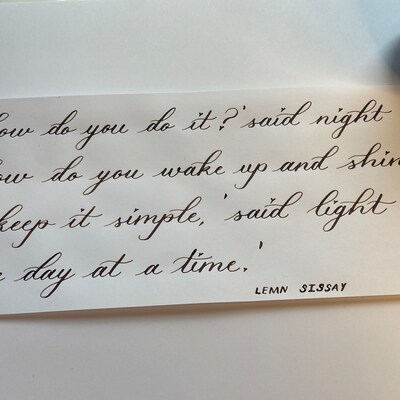 ow do you do it?' said night
ow do you wake up and shin
keep it simple,' said light
day at a time.'
LEMN SISSAY